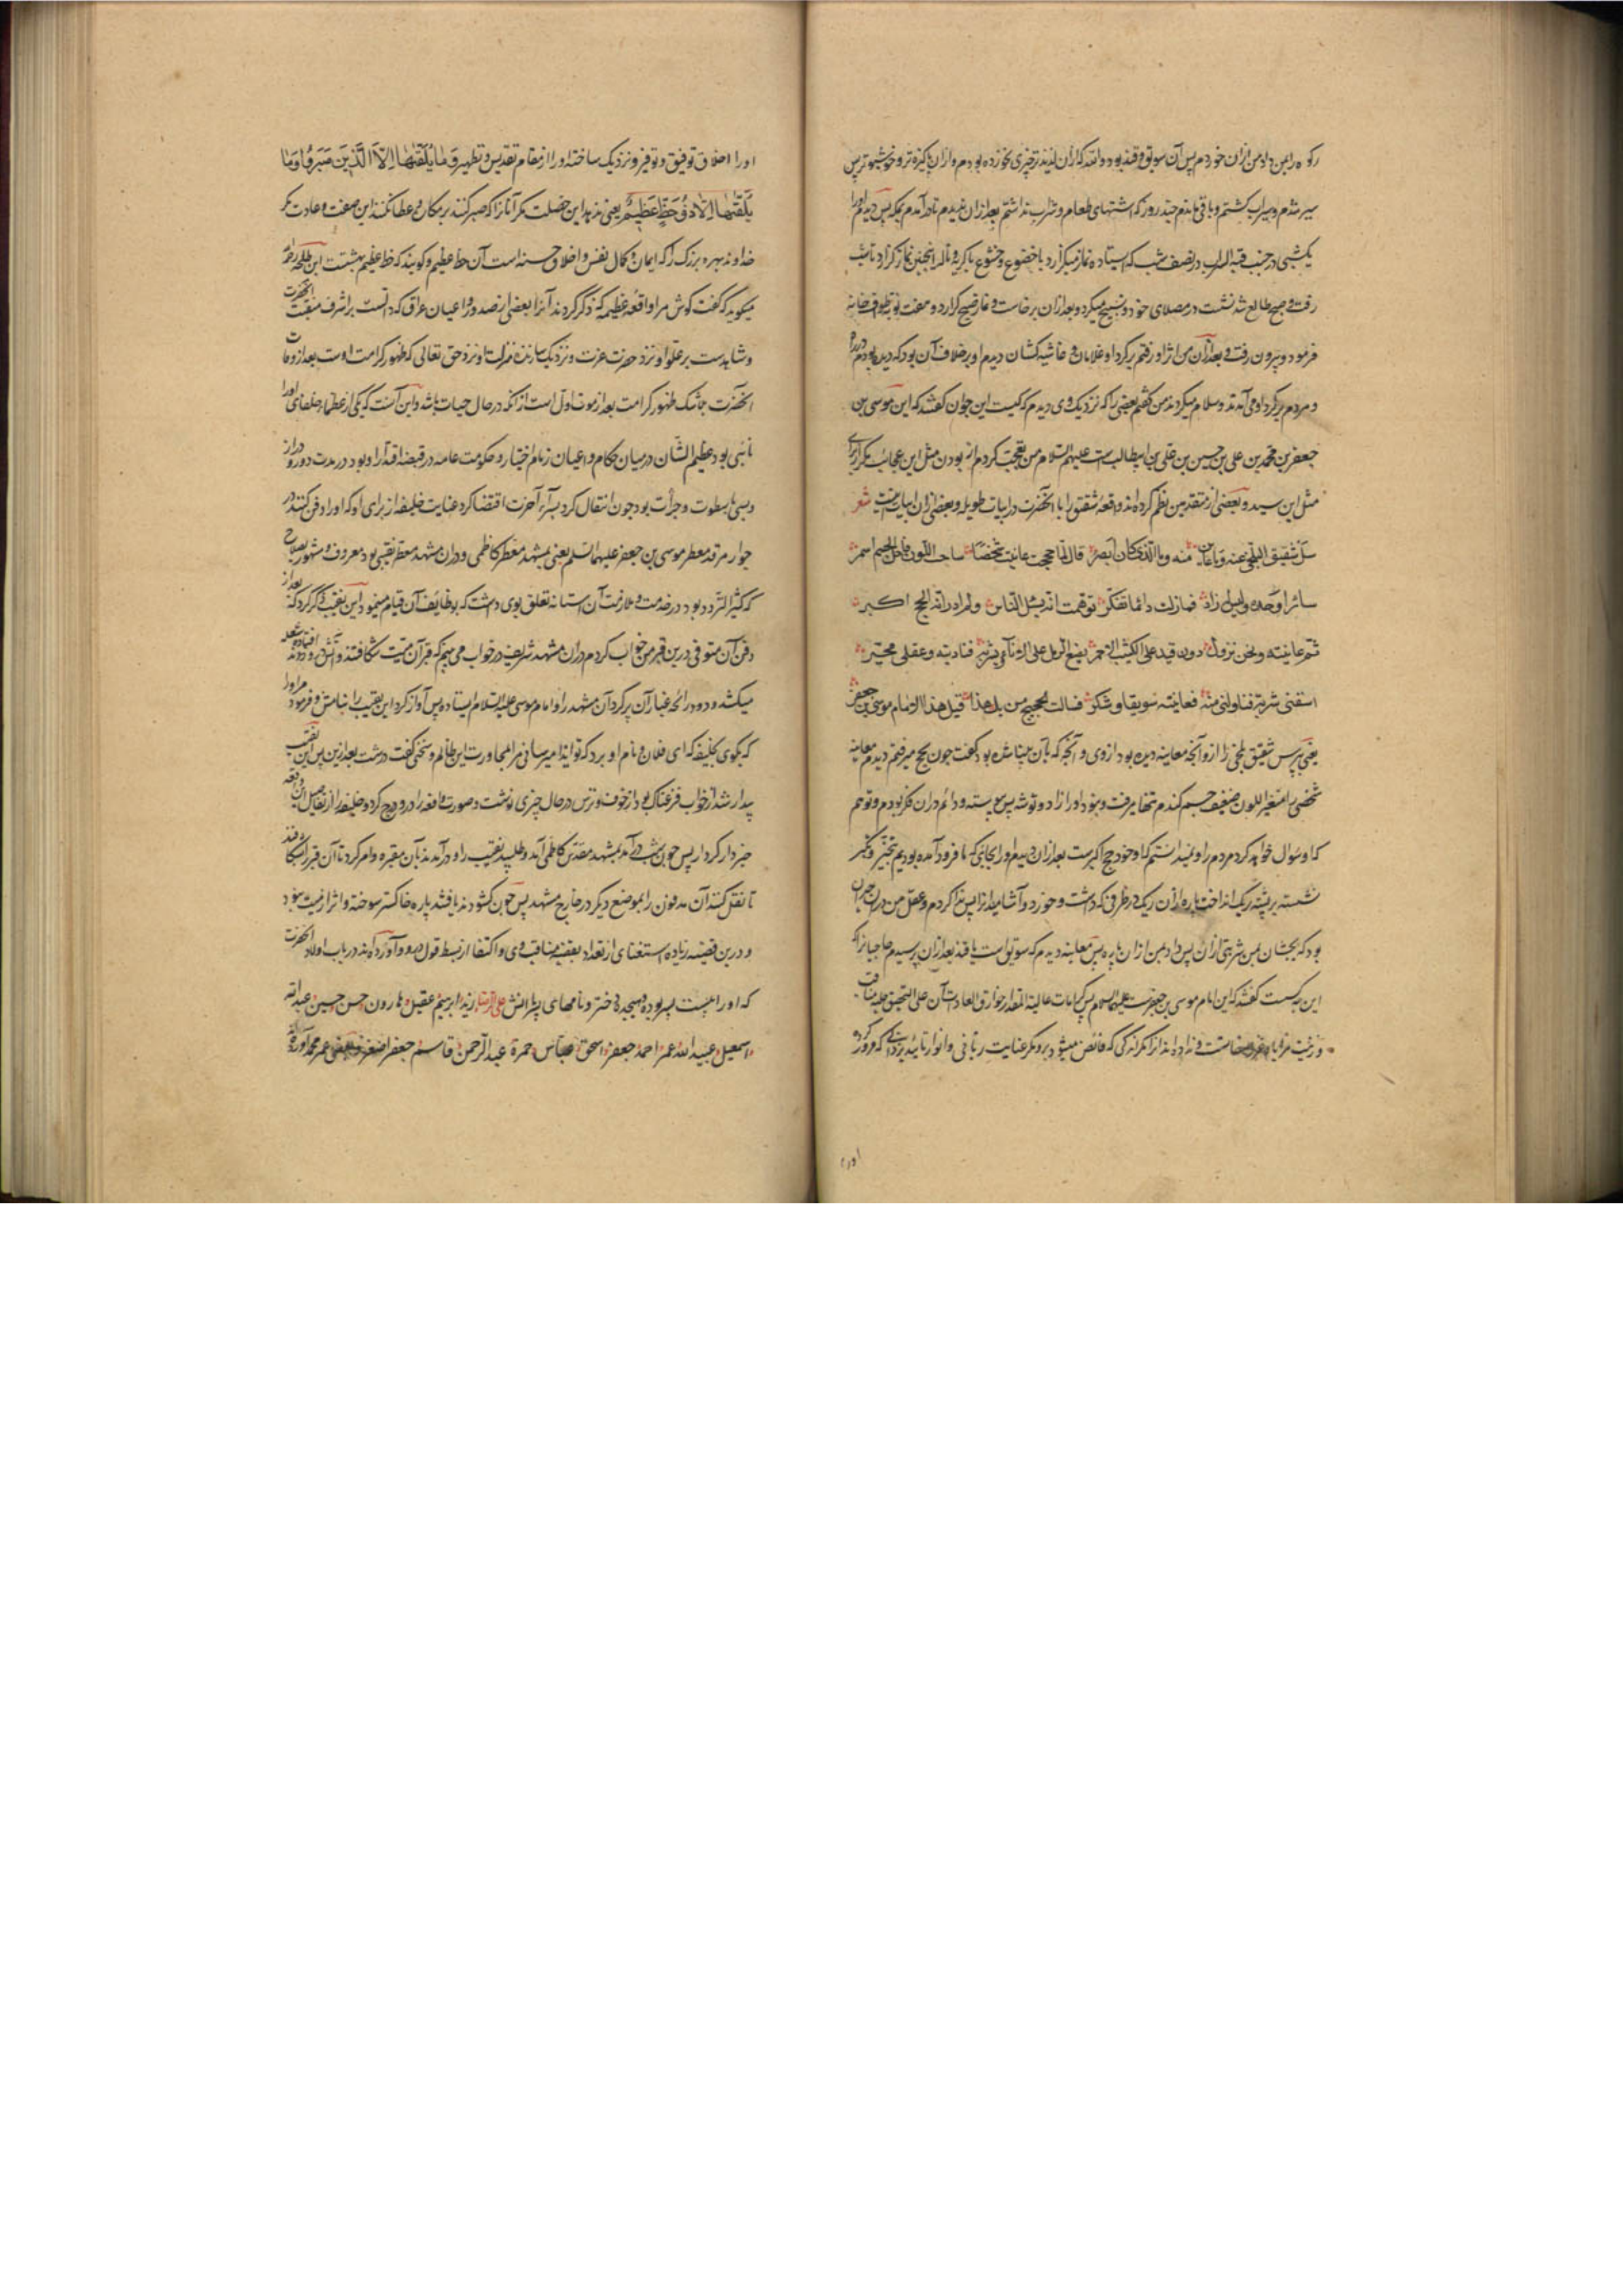 رکوه را بمن داد من ازان خوردم پس آن سویق و قند بود والله که ازان لذیذتر چیزی نخورده بودم و ازان پاکیزه تر و خوشبوتر پس
سیر شدم و سیراب کشتم و باقی ماندم چند روز که اشتهای طعام و شراب نداشتم بعد ازان ندیدم تا درآمدم بمکه پس دیدم اورا
یکشبی در جنب قبة السراب در نصف شب که ایستاده نماز میکزارد با خضوع و خشوع با کریه و ناله اینچنین نماز کزارد تا شب
رفت و صبح طالع شد نشست در مصلای خود و تسبیح میکرد و بعد ازان برخاست و نماز صبح کزارد و هفت نوبة طواف خانه
فرمود و بیرون رفت و بعد ازان من از اثر او رفتم برکرد او غلامان و حاشیه کشان دیدم او بر خلاف آن بود که دیده بودم در راه
و مردم برکرد او می آمدند و سلام میکردند من کفتم بعضی را که نزدیک وی دیدم که کیست این جوان کفتند که این موسی بن
جعفر بن محمد بن علی بن حسین بن علی بن ابیطالب است علیهم السلام من تعجب کردم از بودن مثل این عجائب مکر از برای
مثل این سید و بعضی از متقدمین نظم کرده اند واقعه شقیق را با آنحضرت در ابیات طویله و بعضی ازان ابیات اینست شعر
سل شقیق البلخی عنه وما عاین منه وما الذی کان ابصر قال لما حججت عاینت شخصا شاحب اللون ناحل الجسم اسمر
سائرا وحده ولیس له زاد فما زلت دائما تفکر وتوهمت انه یسئل الناس ولم ادر انه الحج الاکبر
ثم عاینته ونحن نزول دون فید علی الکثیب الاحمر یضع الرمل علی الاناء ویشربه فنادیته وعقلی محیر
اسقنی شربة فناولنی منه فعاینته سویقا وسکر فسالت الحجیج من یک هذا قیل هذا الامام موسی بن جعفر
یعنی بپرس شقیق بلخی را ازو آنچه معاینه دیده بود از وی و آنچه که بآن بینا شده بود کفت چون بحج میرفتم دیدم معاینه
شخصی را متغیر اللون ضعیف جسم کندم تنها میرفت و نبود اورا زاد و توشه پس پیوسته و دائم دران فکر بودم و توهم
که او سؤال خواهد کرد مردم را و نمیدانستم که او خود حج اکبرست بعد ازان دیدم اورا بجائی که ما فرود آمده بودیم
نشسته بر پشته ریک انداخت پاره ازان ریک در ظرفی که داشت و خورد و آشامید انرا پس ندا کردم و عقل من دران حیران
بود که بچشان بمن شربتی ازان پس داد بمن ازان پاره پس معاینه دیدم که سویق است با قند بعد ازان پرسیدم حاجیانرا که
این کیست کفتند که این امام موسی بن جعفرست علیهما السلام پس کرامات عالیة المقدار خوارق العادات آن علی التحقیق حلیه مناقب
و زینت مزایا خاست و نداده اند انرا مکر آنکی که فائض میشود برو مکر عنایت ربانی و انوار تایید یزدانی که مرور کرده
اورا
اورا اخلاق توفیق و توفیر و نزدیک ساخته اورا از مقام تقدیس و تطهیر وَمَا يُلَقَّيٰهَا اِلَّا الَّذِينَ صَبَرُوا وَمَا
يُلَقَّيٰهَا اِلَّا ذُو حَظٍّ عَظِيمٍ یعنی ندهد این خصلت مکر آنانرا که صبر کنند بر مکاره و عطا نکنند این صفت و عادت مکر
خداوند بهره بزرک را که ایمان و کمال نفس و اخلاق حسنه است آن حظ عظیم و کویند که حظ عظیم بهشتست ابن طلحه رحمه
میکوید که کفت کوش مرا واقعه عظیمه که ذکر کردند آنرا بعضی از صدور و اعیان عراق که دالست بر اشرف منقبت آنحضرت
و شاهدست بر علو او نزد حضرت عزت و نزدیک سازنده منزلت او نزد حق تعالی که ظهور کرامت اوست بعد از وفات
آنحضرت چه شک ظهور کرامت بعد از موت اولی است از آنکه در حال حیات باشد و این آنست که یکی از عظماء خلفای اورا
نائبی بود عظیم الشان در میان حکام و اعیان زمام اختیار و حکومت عامه در قبضه اقتدار او بود در مدت دور و دراز
و بسی با سطوت و جرأت بود چون انتقال کرد بسرای آخرت اقتضا کرد عنایت خلیفه از برای او که اورا دفن کنند در
جوار مرقد معطر موسی بن جعفر علیهما السلم یعنی بمشهد معطر کاظمی و دران مشهد معطر نقیبی بود معروف و مشهور بصلاح
که کثیر التردد بود در خدمت و ملازمت آن آستانه تعلق بوی داشت که بوظائف آن قیام مینمود این نقیب ذکر کرد که بعد از
دفن آن متوفی درین قبر من خواب کردم دران مشهد شریف در خواب می بینم که قبر آن میت شکافتند و آتش افتاده شعله
میکشد و دود و رائحه غبار آن پر کرد آن مشهد را و امام موسی علیه السلام ایستاده پس آواز کرد این نقیب را بنامش و فرمود مر اورا
که بکوی بخلیفه که ای فلان و نام او برد که تو ایذا میرسانی مرا بمجاورت این ظالم و سخنی کفت درشت بعد ازین پس این نقیب
بیدار شد از خواب فزعناک بود از خوف و ترس در حال چیزی نوشت و صورت واقعه را درو درج کرد و خلیفه را از تفاصیل آن واقعه
خبردار کردار پس چون شب در آمد بمشهد مقدس کاظمی آمد و طلبید نقیب را و در آمدند بآن مقبره و امر کرد تا آن قبر را شکافند
تا نقل کنند آن مدفون را بموضع دیکر در خارج مشهد پس چون کشودند یافتند پاره خاکستر سوخته و اثر از میت نبود
و درین قضیه زیاده استغنای از تعداد بقیه مناقب وی و اکتفا از بسط قول درو و آورده اند در باب اولاد آنحضرت
که اورا بیست پسر بوده و هیجده دختر و نامهای پسرانش علی الرضا زید ابرهیم عقیل هارون حسن حسین عبدالله
اسمعیل عبیدالله عمر احمد جعفر اسحق عباس حمزة عبدالرحمن قاسم جعفر اصغر و بعضی عمر محمد آورده اند